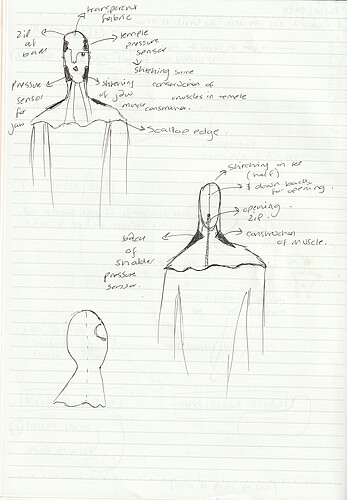 transparent
fabric
zip
at
back
temple
pressure
sensor
stitching some
construction of
muscles in temple
pressure
sensor
for
jaw
of jaw
muscle
Scallop edge.
stitching on top
(half)
& down back
for opening.
opening
zip.
construction
of muscle.
back
of
sholder
pressure
sensor.